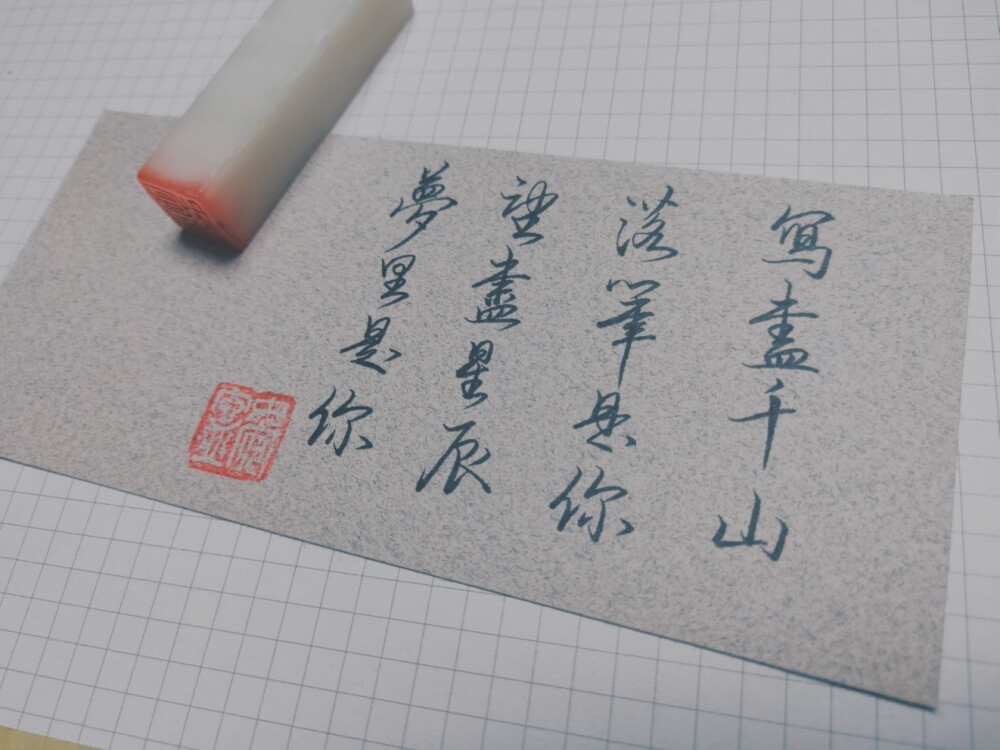 寫盡千山
落筆是你
望盡星辰
夢里是你